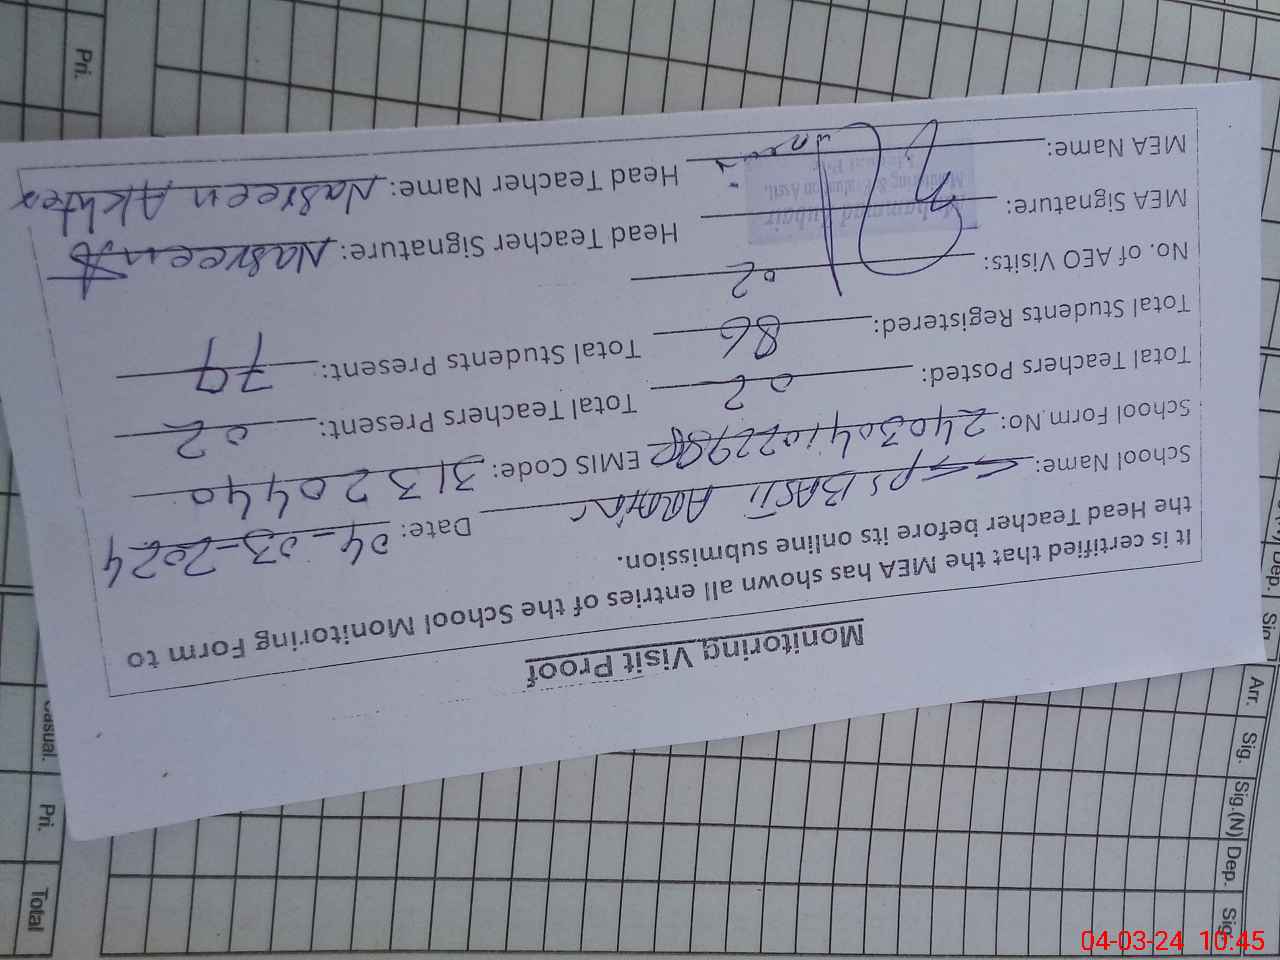 Monitoring Visit Proof
It is certified that the MEA has shown all entries of the School Monitoring Form to
the Head Teacher before its online submission.
School Name: PS BASTI Date: 04-03-2024
School Form No: EMIS Code: 31320440
Total Teachers Posted: 02 Total Teachers Present: 02
Total Students Registered: 86 Total Students Present: 79
No. of AEO Visits: 02
MEA Signature: Head Teacher Signature: Nasreen A
MEA Name: Head Teacher Name: Nasreen Akhter
Muhammad Zubair
Monitoring & Evaluation Asstt.
Pri.
Casual.
Pri.
Total
Dep.
Sig.
Arr.
Sig.
Sig.(N)
Dep.
Sig.
04-03-24 10:45